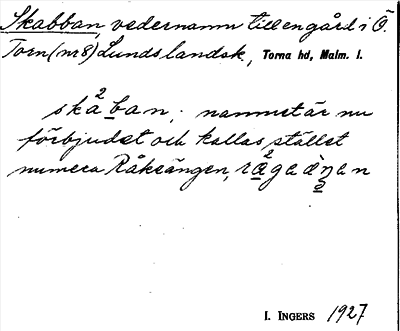 Skabban, vedernamn till en gård i Ö.
Torn (nr 8) Lunds landsk, Torna hd, Malm. l.
ska²ban; namnet är nu
förbjudet och kallas stället
numera Råkeängen,
I. INGERS 1927